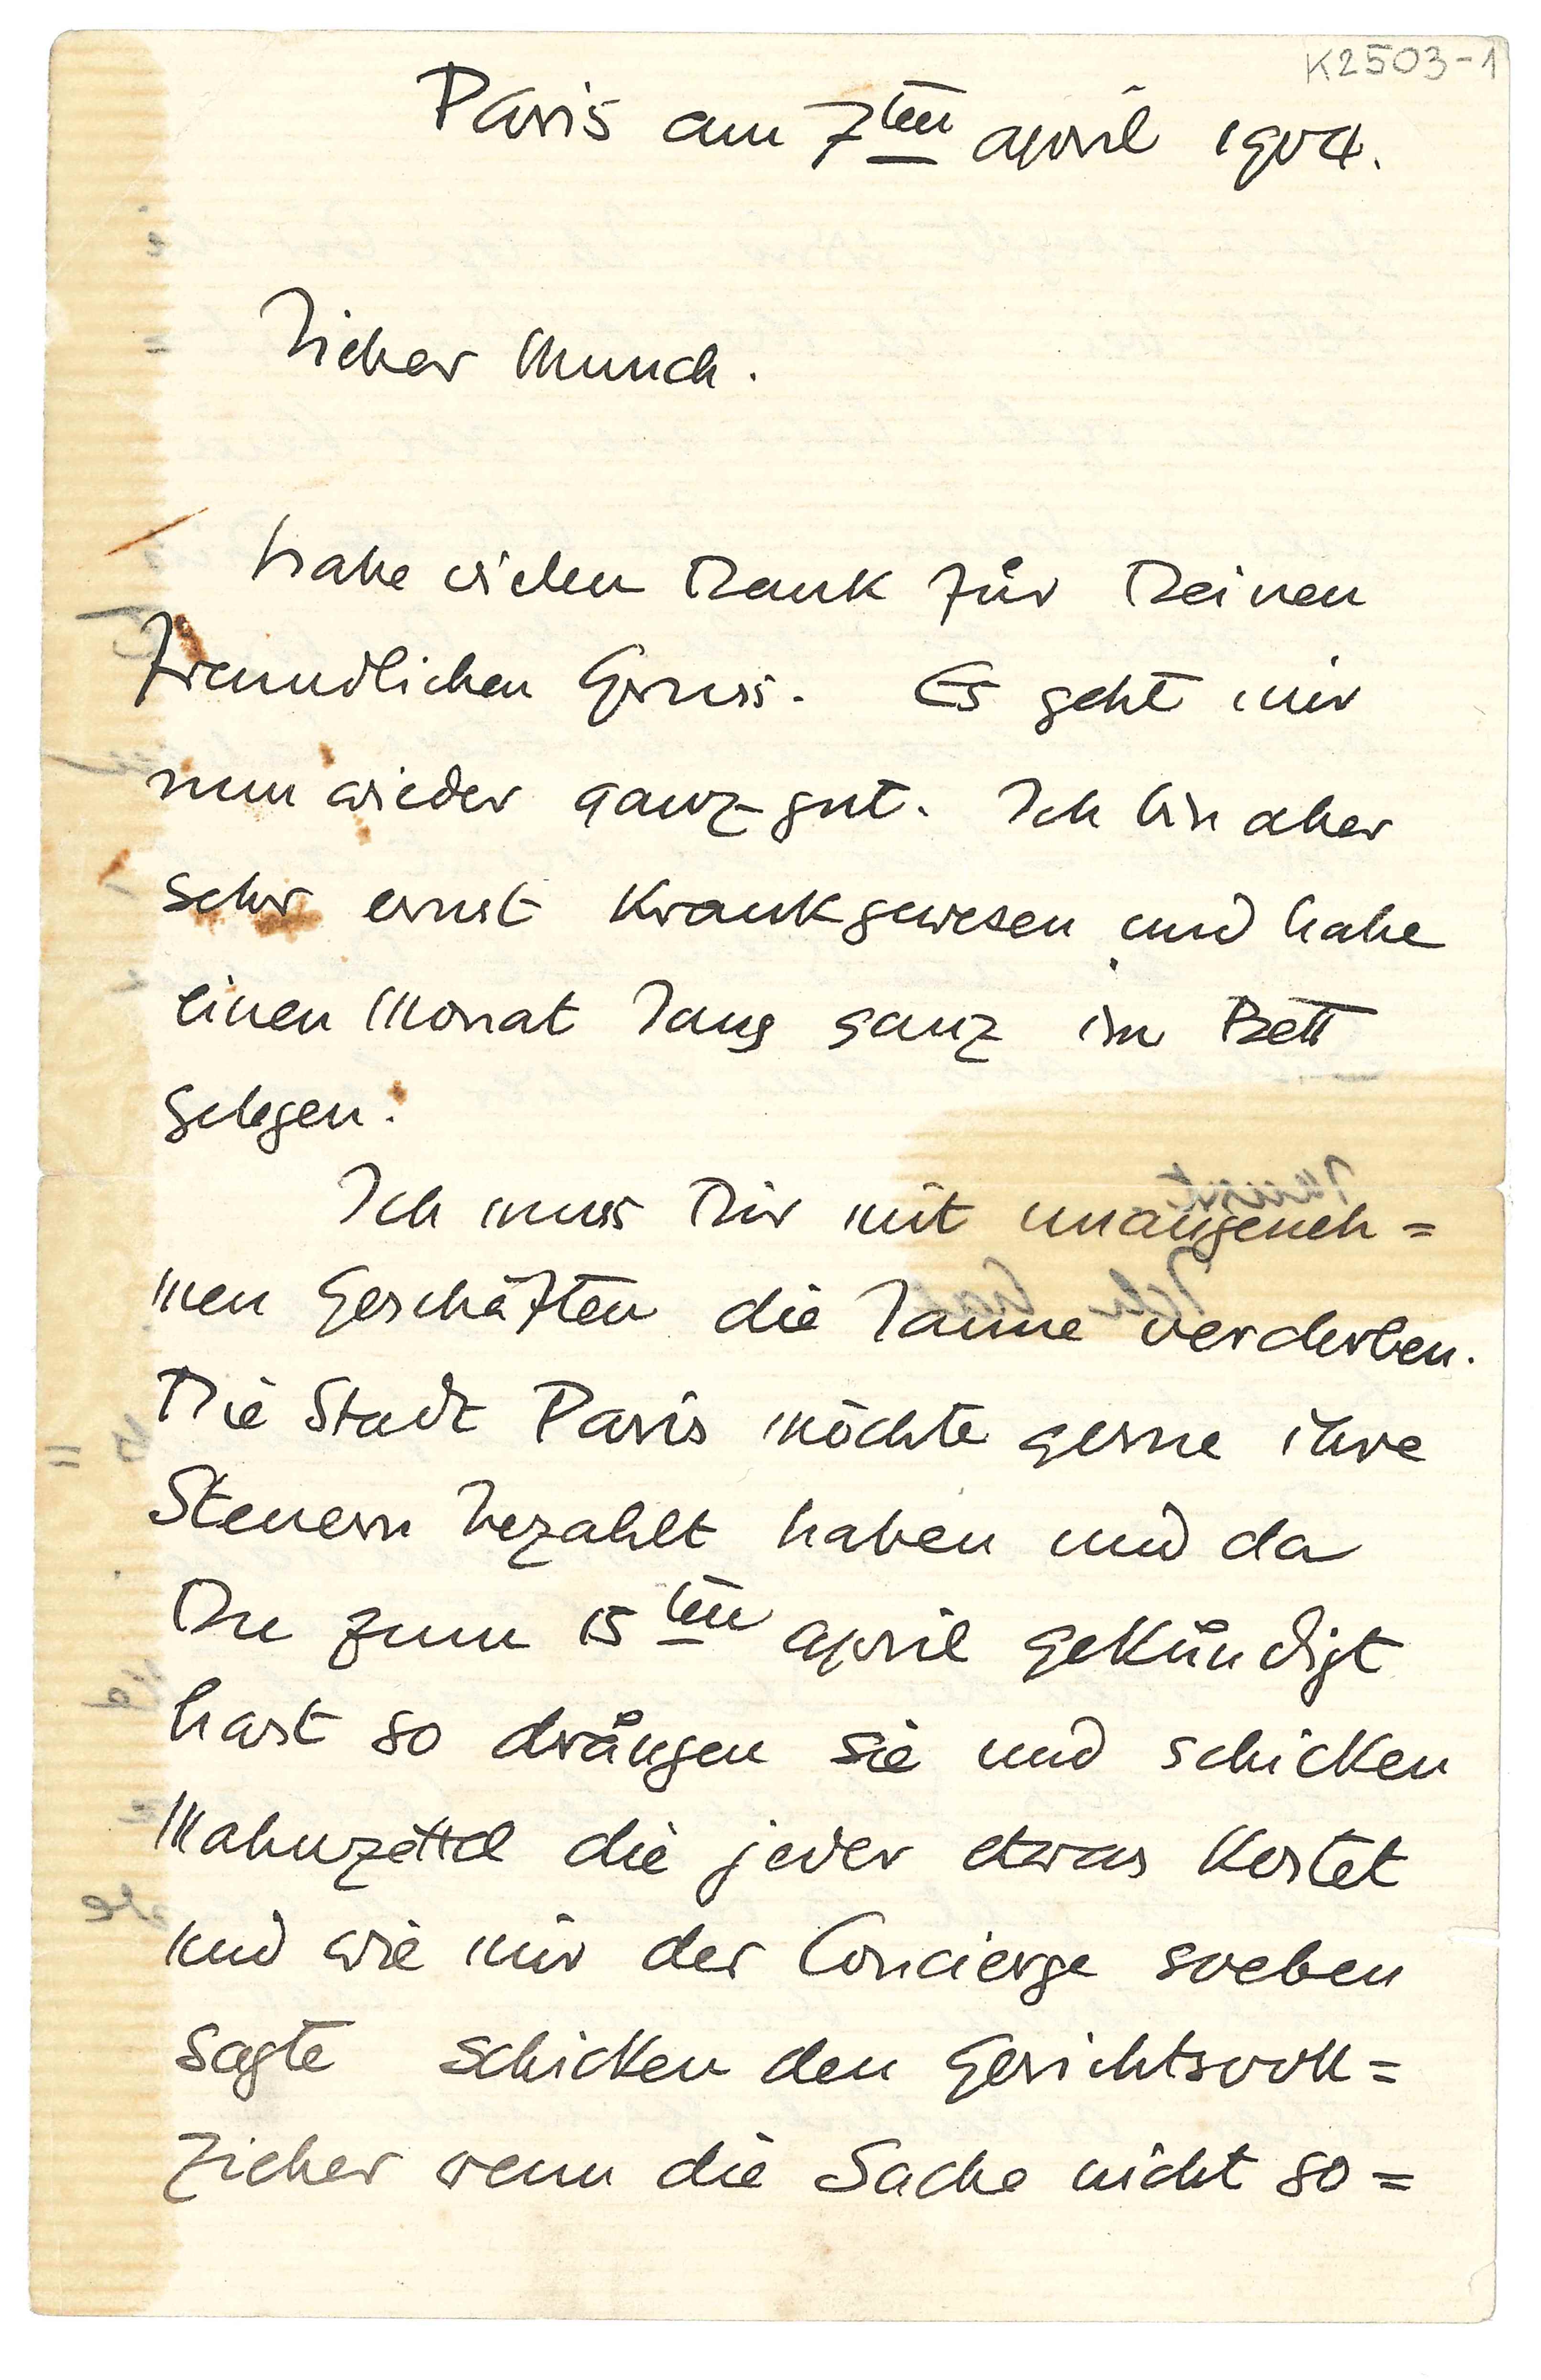 K2503-1
Paris am 7ten april 1904.
Lieber Munch.
habe vielen Dank für Deinen
freundlichen Gruss. Es geht mir
nun wieder ganz gut. Ich bin aber
sehr ernst Krank gewesen und habe
einen Monat lang ganz im Bett
gelegen.
Ich muss Dir mit unangeneh=
men Geschäften die Laune verderben.
Die Stadt Paris möchte gerne ihre
Steuern bezahlt haben und da
Du zum 15ten april geKündigt
hast so drängen sie und schicKen
Mahnzettel die jeder etwas Kostet
und wie mir der Concierge soeben
sagte schicKen den Gerichtsvoll=
zieher wenn die Sache nicht so=